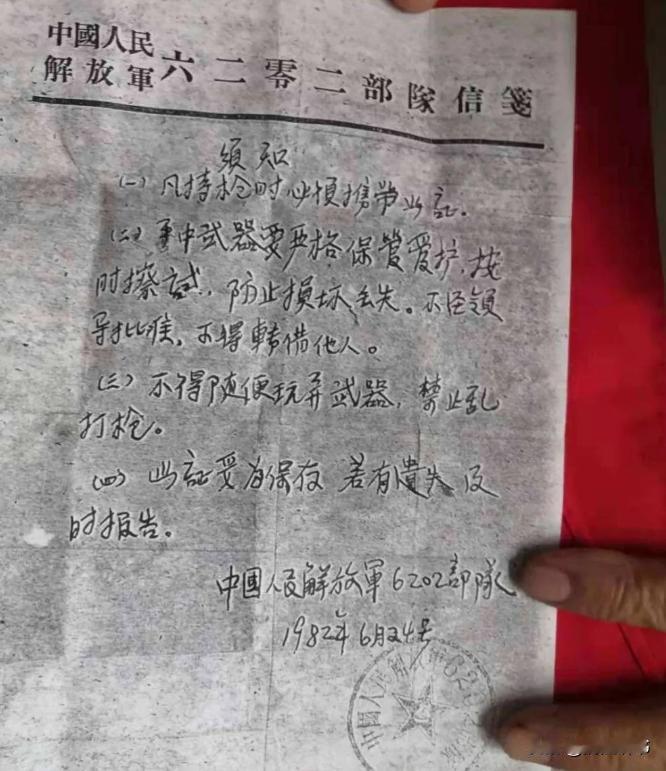 中國人民
解放軍六二零二部隊信箋
須知
(一) 凡持枪时必須携带此証.
(二) 手中武器要严格保管爱护.按
时擦試,防止損坏丢失。不经領
导批准,不得轉借他人。
(三) 不得随便玩弄武器,禁止乱
打枪。
(四) 此証妥为保存 若有遺失 及
时报告。
中國人民解放軍6202部隊
1982年6月24号
中國人民解放軍6202